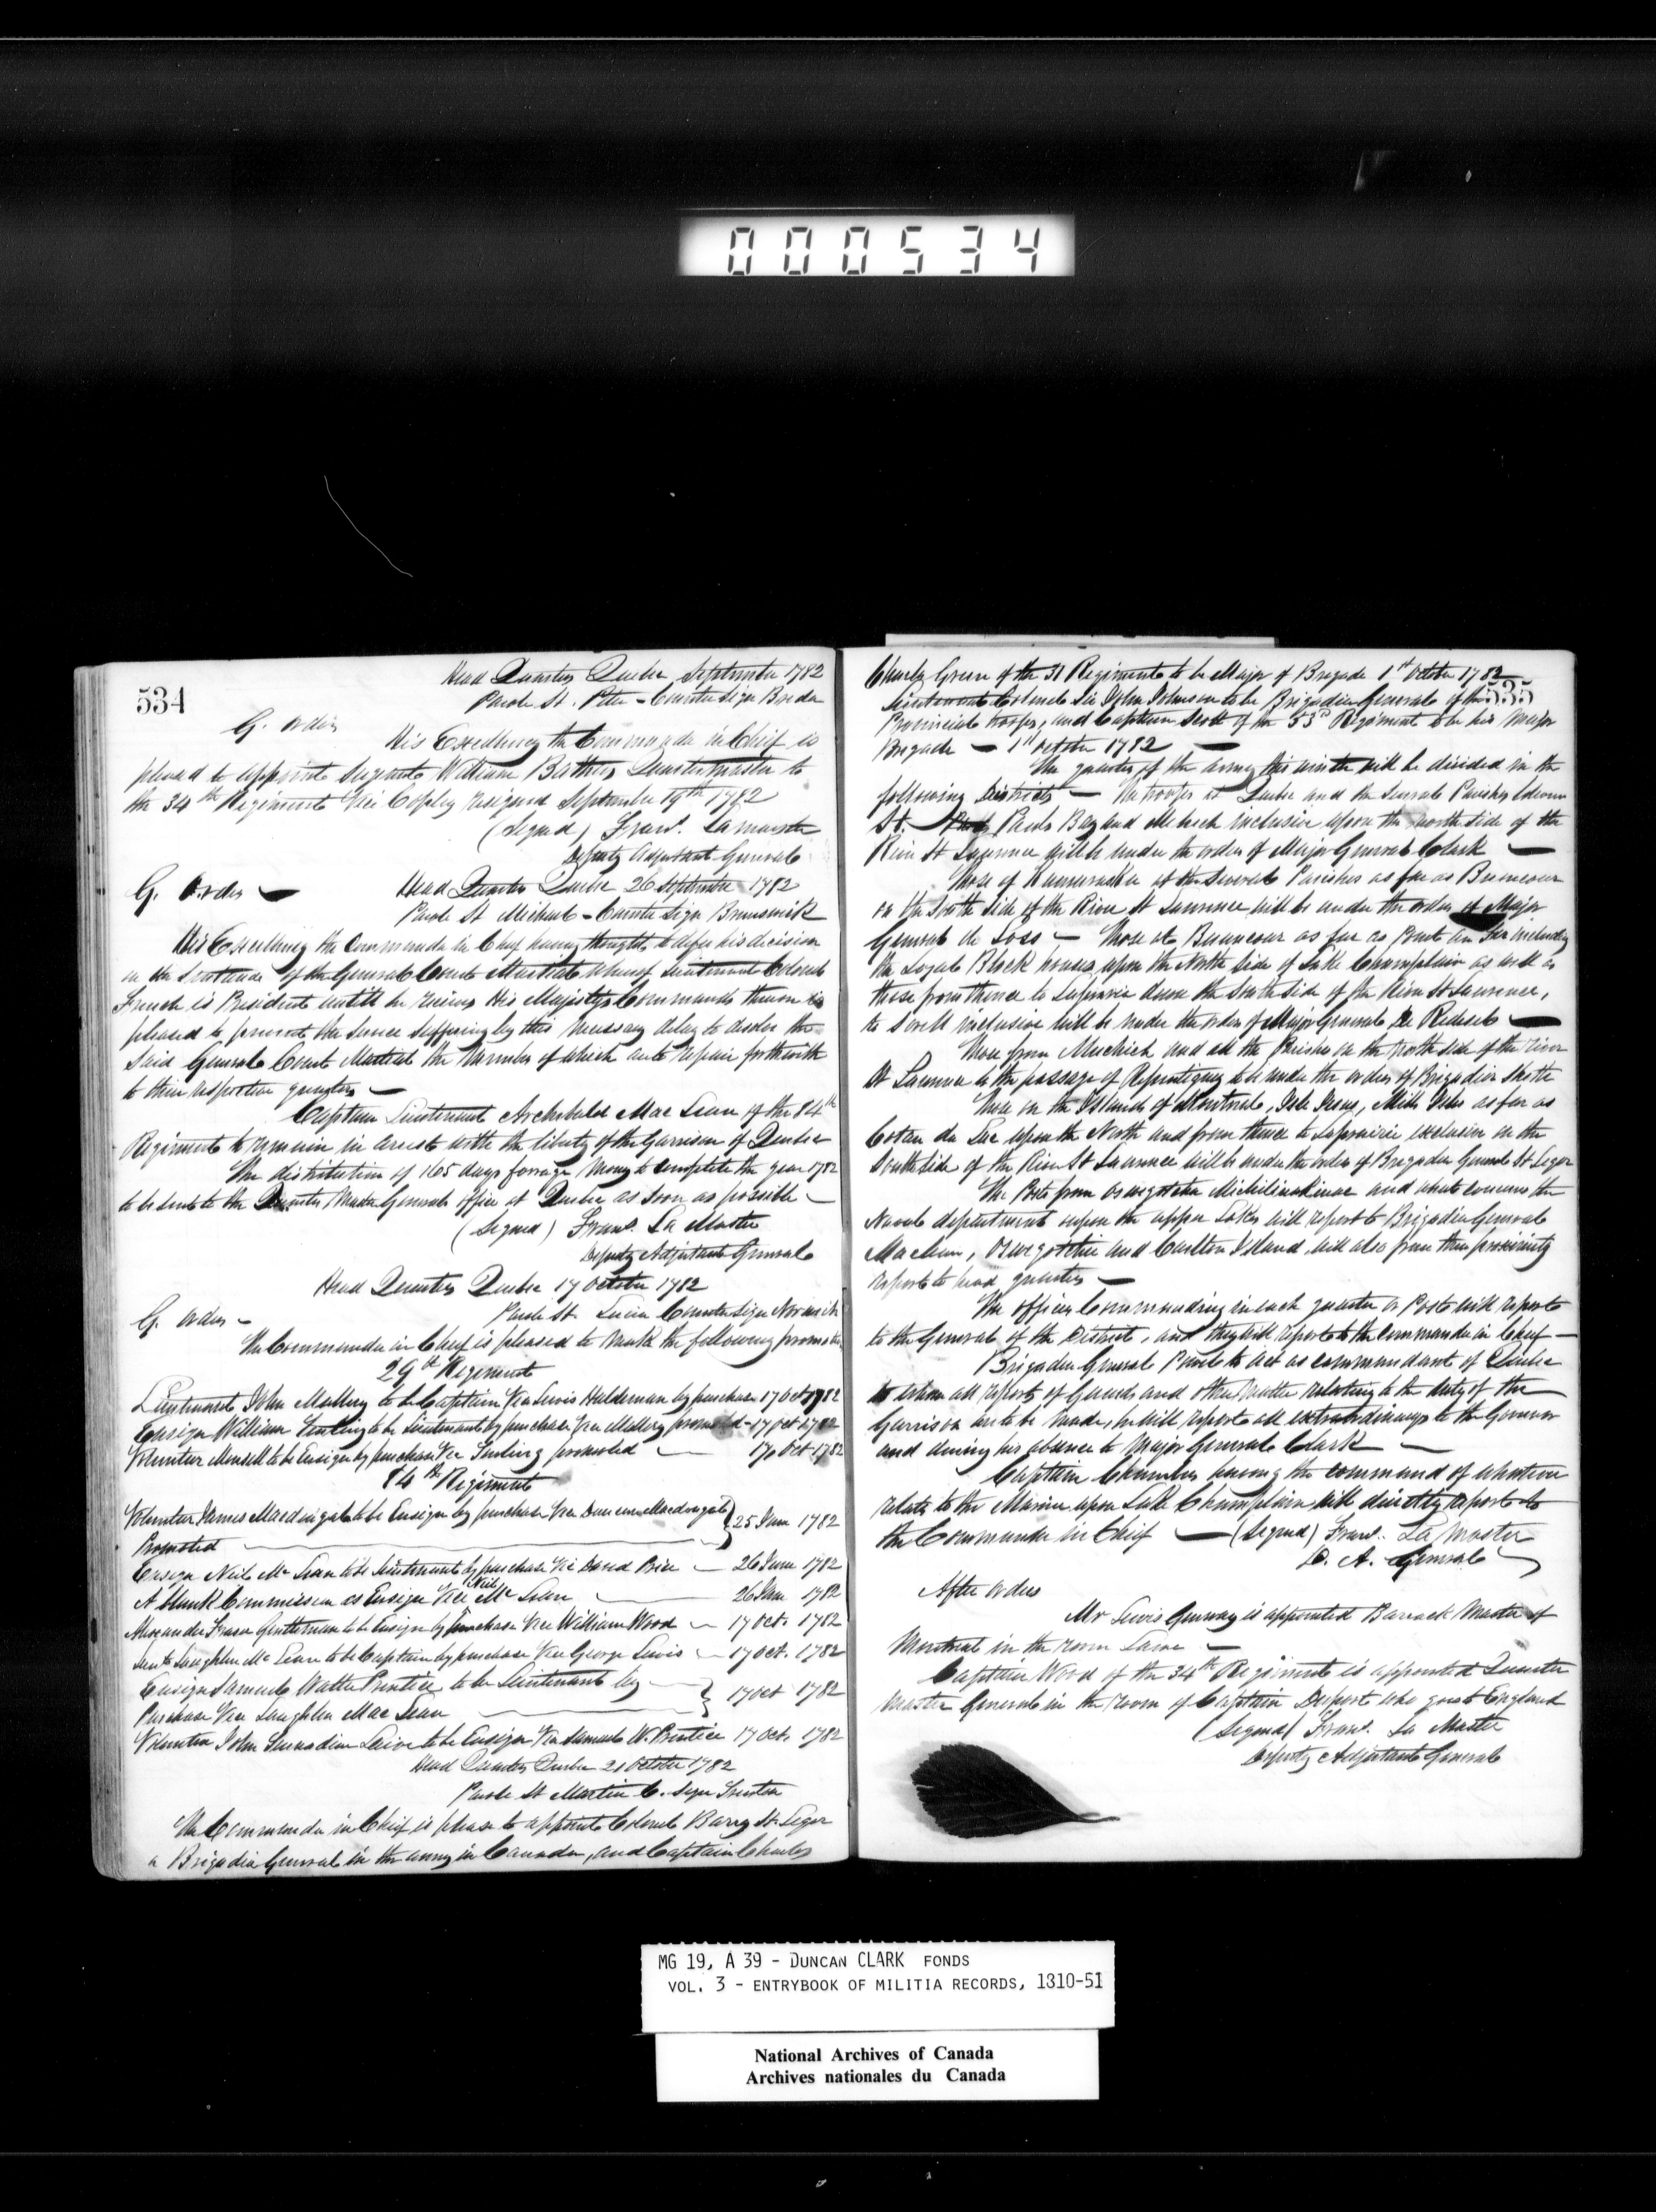 000534
534
Head Quarters Quebec September 1782
Parole St. Peter - Counter Sign Breda
G. orders
His Excellency the Commander in Chief is
pleased to appoint Sergeant William Quartermaster to
the 34th Regiment Vice Copley resigned September 19th 1782
(Signed) Frans. Lamaister
Deputy Adjutant General
G. Orders — Head Quarters Quebec 26 September 1782
Parole St Michael - Counter Sign Brunswick
His Excellency the Commander in Chief having thought to defer his decision
on the Sentence of the General Court Martial whereof Lieutenant Colonel
French is President untill he recieves His Majestys Commands thereon is
pleased to prevent the Service suffering by this necessary delay to disolve the
said General Court Martial the members of which are to repair forthwith
to their respective quarters —
Captain Lieutenant Archibald Mac Lean of the 84th
Regiment to remain in arrest with the liberty of the Garrison of Quebec
The distribution of 165 days forrage money to complete the year 1782
to be sent to the Quarter Master Generals office at Quebec as soon as possible —
(Signed) Frans. La Maistre
Deputy Adjutant General
Head Quarters Quebec 17 October 1782
G. orders - Parole St. Lucia Counter Sign Norwich
The Commander in Chief is pleased to make the following promotion
29th Regiment
Lieutenant John Mallery to be Captain Vice Lewis Haldeman by purchase 17 Oct 1782
Ensign William to be Lieutenant by purchase Vice Mallery promoted - 17 Oct 1782
Volunteer Monsell to be Ensign by purchase Vice promoted — 17 Oct 1782
84th Regiment
Volunteer James Macdougald to be Ensign by purchase Vice Duncan Macdougald } 25 June 1782
Promoted
Ensign Neil Mc Lean to be Lieutenant by purchase Vice David — 26 June 1782
A blank Commission as Ensign Vice Neil Mc Lean — 26 June 1782
Alexander Fraser Gentleman to be Ensign by purchase Vice William Wood — 17 Oct. 1782
Lieut Laughlin Mc Lean to be Captain by purchase Vice George Lewis — 17 Oct. 1782
Ensign Samuel Walter Prentice to be Lieutenant by } 17 Oct 1782
Purchase Vice Laughlin Mac Lean
Volunteer John to be Ensign Vice Samuel W. Prentice 17 Oct. 1782
Head Quarters Quebec 21 October 1782
Parole St Martin C. Sign
The Commander in Chief is please to appoint Colonel Barry St. Leger
a Brigadier General in the army in Canada, and Captain Charles
535
Charles Green of the 31 Regiment to be Major of Brigade 1st October 1782
Lieutenant Colonel Sir John Johnson to be Brigadier General of the
Provincial troops, and Captain Scott of the 53rd Regiment to be his Major
Brigade — 1st October 1782 —
The quarters of the army this winter will be divided in the
following Districts — The troops at Quebec and the several Parishes between
St. Pauls Bay and inclusive upon the north side of the
River St Lawrence will be under the orders of Major General Clark —
Those of Kamuraska at the several Parishes as far as Becancour
on the South side of the River St Lawrence will be under the orders of Major
General de Loss — Those at Becancour as far as Point au Fer including
the Loyal Block houses upon the North side of Lake Champlain as well as
those from thence to Laprairie down the South side of the River St Lawrence,
to Sorell inclusive will be under the orders of Major General De Reidesel —
Those from Machich and all the Parishes on the North side of the river
St Lawrence to the passage of Repentigny to be under the orders of Brigadier
Those on the Islands of Montreal, Isle Jesus, Mille Isles as far as
Cotau du Lac upon the North and from thence to Laprairie exclusive on the
South side of the River St Lawrence will be under the orders of Brigadier General St Leger
The Posts from Oswegotchie Michilimakinac and what concerns the
Naval department upon the upper Lakes will report to Brigadier General
Maclean, Oswegotchie and Carlton Island will also from their proximity
report to head quarters —
The officers Commanding in each quarter or Posts will report
to the General of the District, and they will report to the commander in Chief —
Brigadier General to act as commandant of Quebec
to whom all reports of Guards and other matter relating to the duty of the
Garrison are to be made, he will report all extraordinarys to the Governor
and during his absence to Major General Clark —
Captain Chambers having the command of whatever
relates to the Marine upon Lake Champlain will directly report to
the Commander in Chief — (Signed) Frans. La Maistre
D. A. General
After orders
Mr Lewis is appointed Barrack Master of
Montreal in the room —
Captain Wood of the 34th Regiment is appointed Quarter
Master General in the room of Captain who goes to England
(Signed) Frans. La Maistre
Deputy Adjutant General
MG 19, A 39 - DUNCAN CLARK FONDS
VOL. 3 - ENTRYBOOK OF MILITIA RECORDS, 1810-51
National Archives of Canada
Archives nationales du Canada